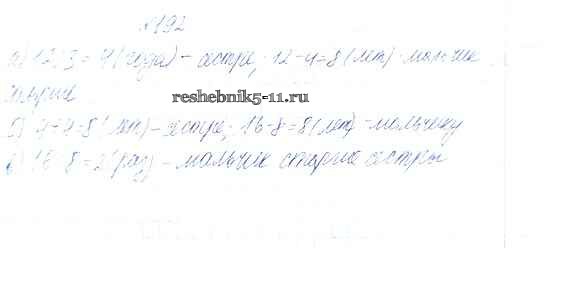 №192
а) 12:3=4 (года) - сестре; 12-4=8 (лет) мальчик
старше
reshebnik5-11.ru
б) 4+4=8 (лет) - сестре; 16-8=8 (лет) - мальчику
в) 16:8=2 (раз) - мальчик старше сестры